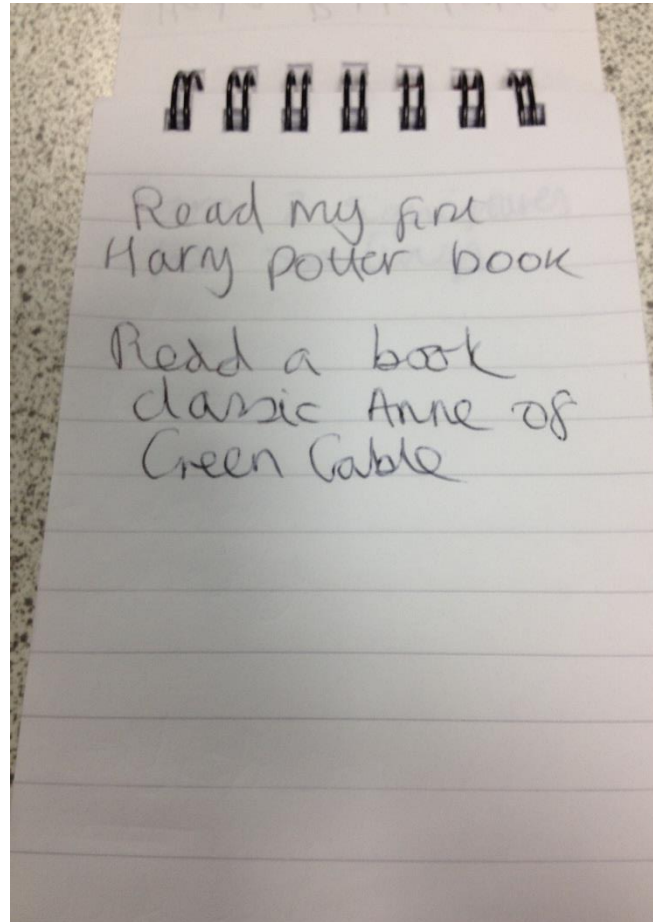 Read my first
Harry Potter book
Read a book
classic Anne of
Green Gable